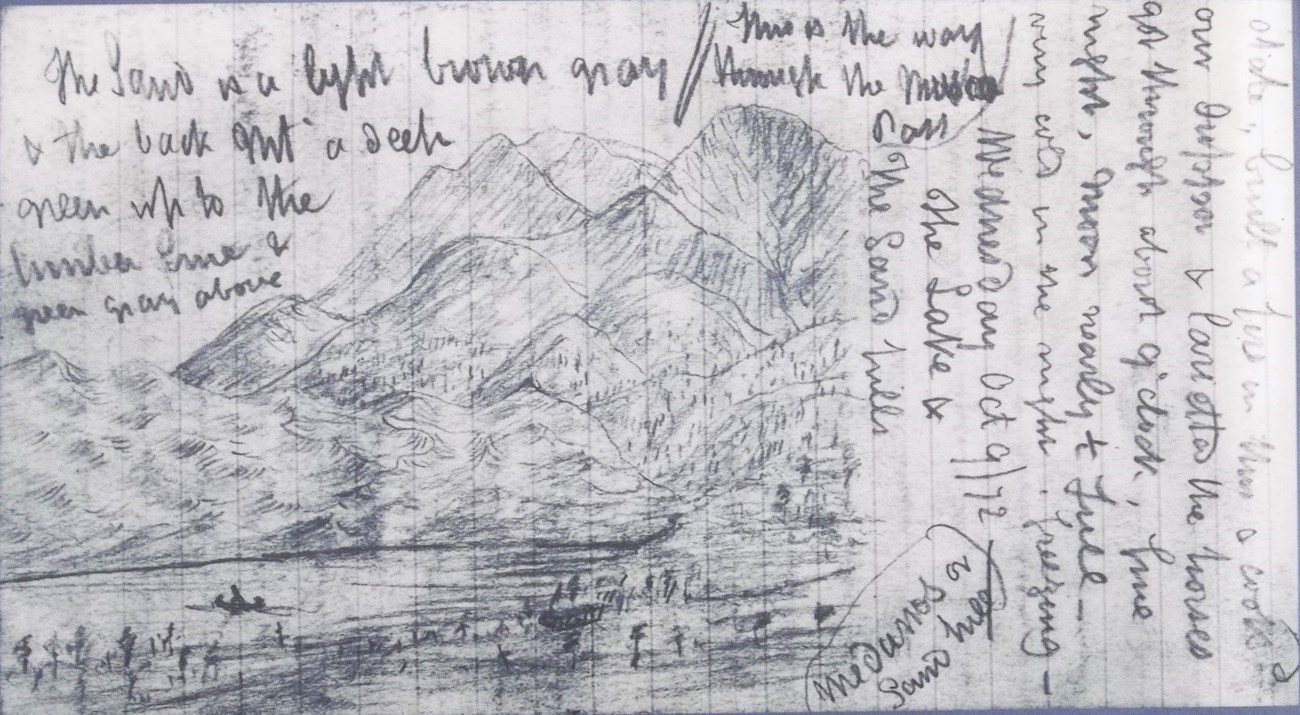 The Sand is a light brown gray
& the back mt a deep
green up to the
timber line &
green gray above
This is the way
through the
Pass
The Sand hills
The Lake &
Wednesday Oct 9/72
very cold in the night. freezing —
night, moon nearly ½ full —
got through about 9 o'clock, fine
our supper & larietted the horses
built a fire in
Medanos
Sand hills